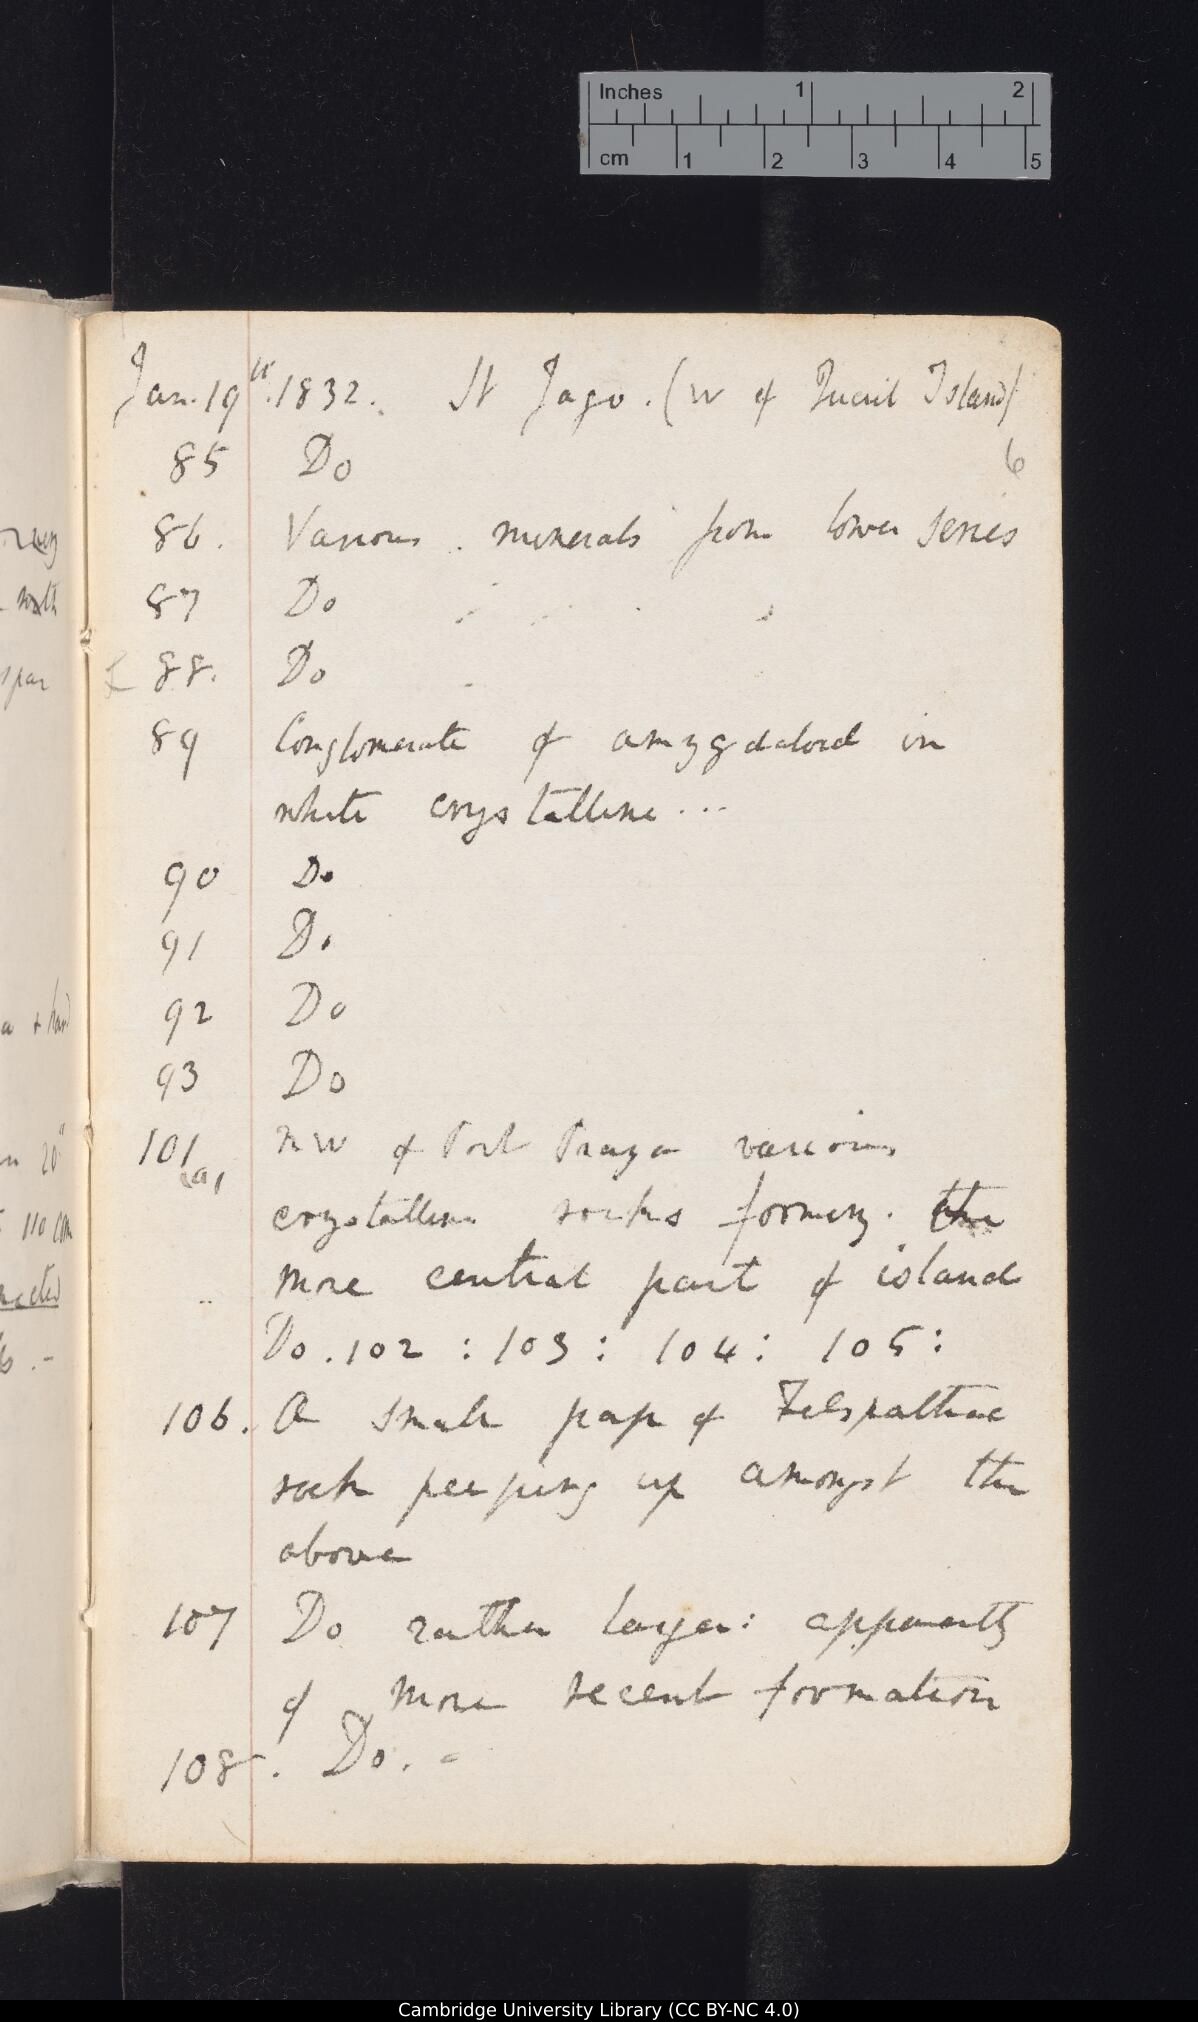 Inches 1 2
cm 1 2 3 4 5
Jan. 19th. 1832. St Jago. (W of Quail Island)
6
85 Do
86. Various minerals from lower series
87 Do
88. Do
89 Conglomerate of amygdaloid in
white crystalline ...
90 Do
91 Do
92 Do
93 Do
101 NW of Port Praya various
(a)
crystalline rocks forming. the
more central part of island
Do. 102 : 103 : 104 : 105 :
106. A small pap of Felspathic
rock peeping up amongst the
above
107 Do rather larger: apparently
of more recent formation
108. Do. -
spar
110
Cambridge University Library (CC BY-NC 4.0)